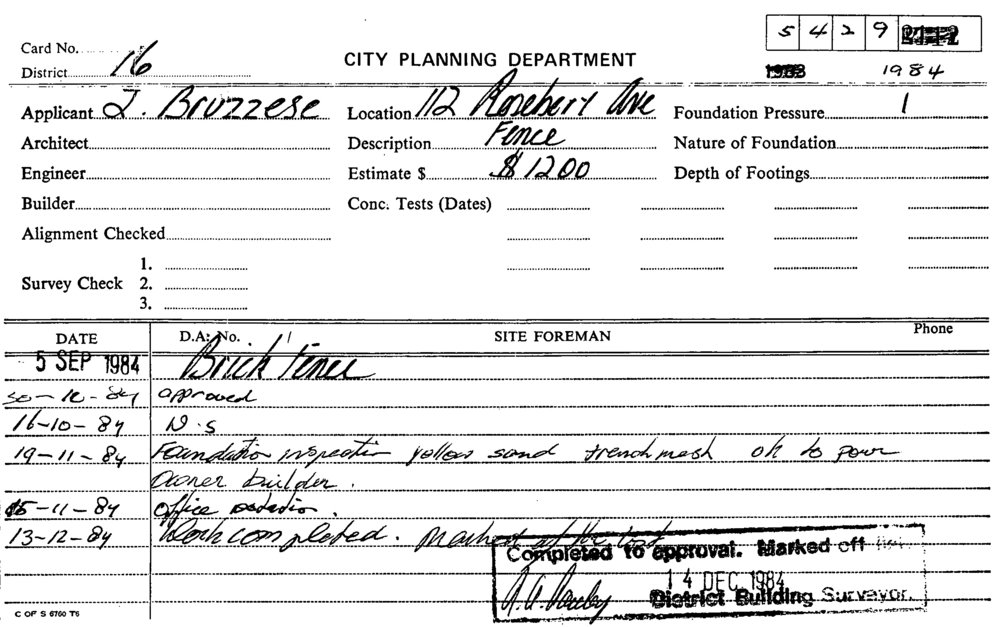 5 4 2 9
Card No.
District 16
CITY PLANNING DEPARTMENT
1983 1984
Applicant I. Bruzzese Location 112 Rosebery Ave Foundation Pressure 1
Architect Description Fence Nature of Foundation
Engineer Estimate $ $1200 Depth of Footings
Builder Conc. Tests (Dates)
Alignment Checked
Survey Check 1.
2.
3.
DATE D.A. No. SITE FOREMAN Phone
5 SEP 1984 Brick Fence
approved
16-10-84 N.S
19-11-84 Foundation inspection yellow sand trench mesh ok to pour
owner builder.
15-11-84 office
13-12-84 Work completed. Marked at the
Completed to approval. Marked off
14 DEC 1984
District Building Surveyor.
C OF S 6760 T6